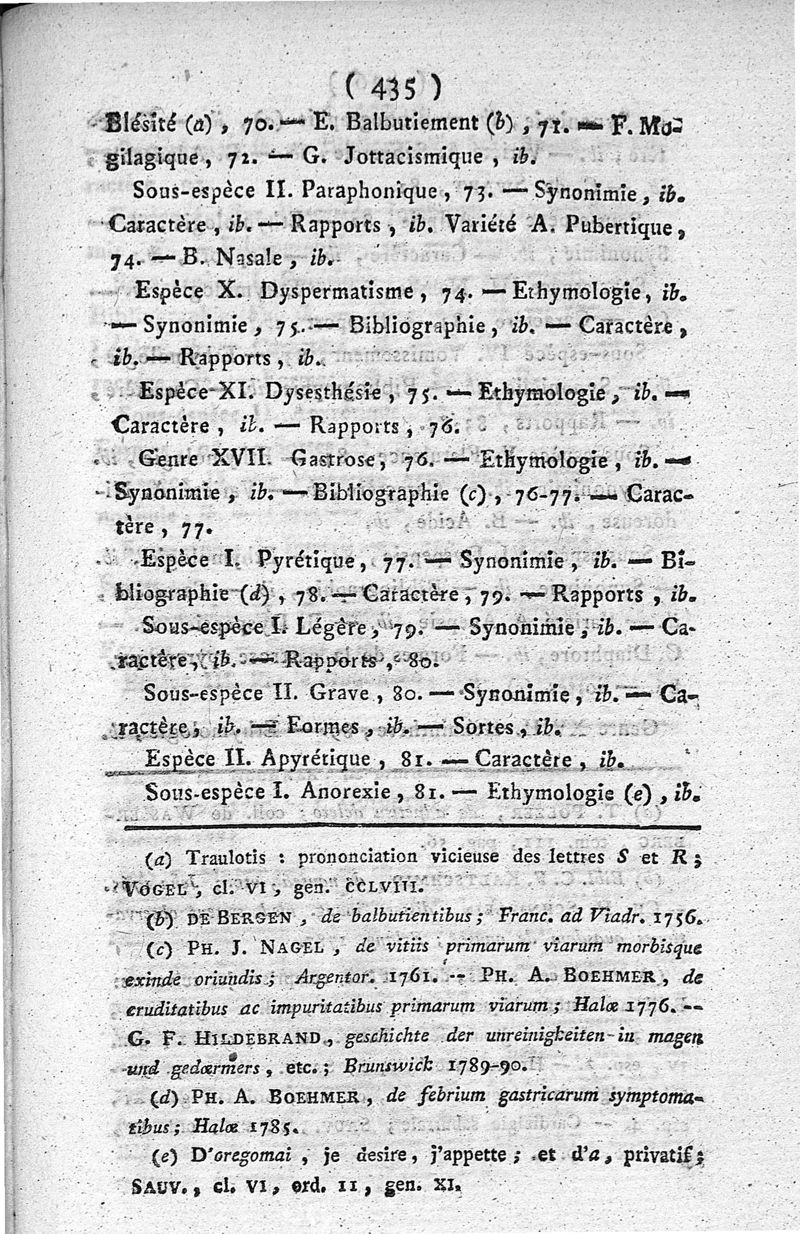 ( 435 )
Blésité (a) , 70. — E. Balbutiement (b) , 71. — F. Mo-
gilagique , 72. — G. Jottacismique , ib.
Sous-espèce II. Paraphonique , 73. — Synonimie , ib.
Caractère , ib. — Rapports , ib. Variété A. Pubertique ,
74. — B. Nasale , ib.
Espèce X. Dyspermatisme , 74. — Ethymologie , ib.
— Synonimie , 75. — Bibliographie , ib. — Caractère ,
ib. — Rapports , ib.
Espèce XI. Dysesthésie , 75. — Ethymologie , ib. —
Caractère , ib. — Rapports , 76.
Genre XVII. Gastrose , 76. — Ethymologie , ib. —
Synonimie , ib. — Bibliographie (c) , 76-77. — Carac-
tère , 77.
Espèce I. Pyrétique , 77. — Synonimie , ib. — Bi-
bliographie (d) , 78. — Caractère , 79. — Rapports , ib.
Sous-espèce I. Légère , 79. — Synonimie , ib. — Ca-
ractère , ib. — Rapports , 80.
Sous-espèce II. Grave , 80. — Synonimie , ib. — Ca-
ractère , ib. — Formes , ib. — Sortes , ib.
Espèce II. Apyrétique , 81. — Caractère , ib.
Sous-espèce I. Anorexie , 81. — Ethymologie (e) , ib.
(a) Traulotis : prononciation vicieuse des lettres S et R ;
VOGEL , cl. VI , gen. CCLVIII.
(b) DE BERGEN , de balbutientibus ; Franc. ad Viadr. 1756.
(c) PH. J. NAGEL , de vitiis primarum viarum morbisque
exinde oriundis ; Argentor. 1761. -- PH. A. BOEHMER , de
cruditatibus ac impuritatibus primarum viarum ; Halœ 1776. --
G. F. HILDEBRAND , geschichte der unreinigkeiten in magen
und gedœrmers , etc. ; Brunswick 1789-90.
(d) PH. A. BOEHMER , de febrium gastricarum symptoma-
tibus ; Halœ 1785.
(e) D'oregomai , je desire , j'appette ; et d'a , privatif ;
SAUV. , cl. VI , ord. II , gen. XI.